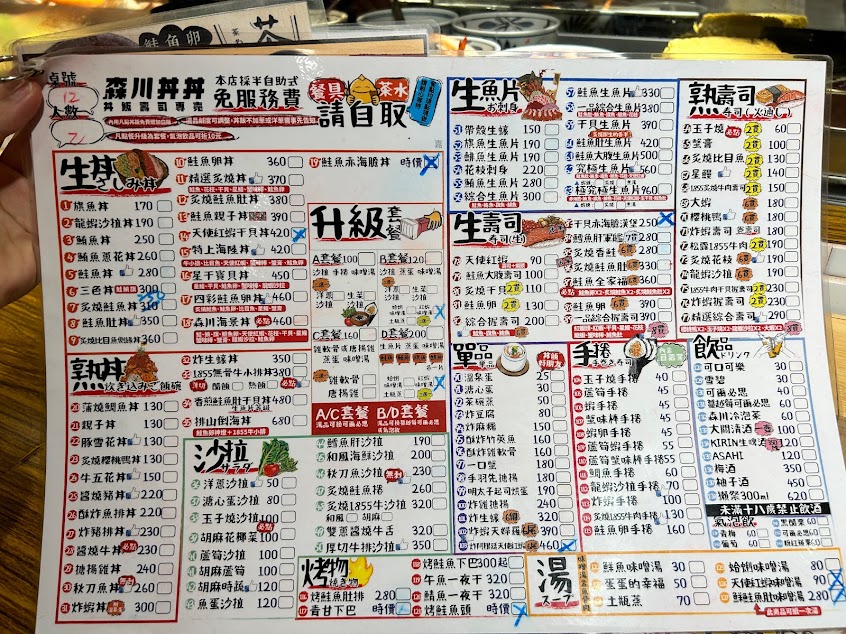 鮭魚卵
桌號
12
人數
7
森川丼丼
丼飯壽司專賣
本店採半自助式
免服務費
餐具
茶水
請自取
生丼
さしみ丼
1 旗魚丼 170
2 龍蝦沙拉丼 190
3 鮪魚丼 250
4 鮪魚蔥花丼 260
5 鮭魚丼 280
6 三色丼 300
7 炙燒鮭魚丼 310
8 鮭魚肚丼 350
9 炙燒比目魚丼
10 鮭魚卵丼 360
11 精選炙燒丼 370
12 炙燒鮭魚肚丼 380
13 鮭魚親子丼 390
14 天使紅蝦干貝丼 420
15 特上海陸丼 420
16 星干寶貝丼 450
17 四彩鮭魚卵丼 460
18 森川海景丼 460
19 鮭魚赤海膽丼 時價
升級套餐
A套餐100
沙拉 手捲 味噌湯
B套餐120
沙拉 蒸蛋 味噌湯
C套餐160
雞軟骨或唐揚雞
沙拉 手捲 味噌湯
D套餐200
生魚片 蒸蛋 味噌湯
雞軟骨
唐揚雞
A/C套餐
B/D套餐
熟丼
炊き込みご飯碗
20 蒲燒鯛魚丼 130
21 親子丼 130
22 豚雪花丼 130
23 炙燒櫻桃鴨丼 130
24 牛五花丼 150
25 醬燒豬丼 220
26 酥炸魚排丼 220
27 炸豬排丼 230
28 醬燒牛丼 230
29 揚雞丼 240
30 秋刀魚丼 260
31 炸蝦丼 300
32 炸生蠔丼 330
33 1855無骨牛小排丼 380
34 香煎鮭魚肚干貝丼 480
35 排山倒海丼 680
沙拉
サラダ
36 洋蔥沙拉 50
37 溏心蛋沙拉 80
38 玉子燒沙拉 100
39 胡麻花椰菜 100
40 蘆筍沙拉 100
41 胡麻蘆筍 100
42 胡麻時蔬 120
43 魚蛋沙拉 120
44 鱈魚肝沙拉 190
45 和風海鮮沙拉 200
46 秋刀魚沙拉 230
47 炙燒鮭魚捲 260
48 1855炙燒牛沙拉 320
和風 胡麻
49 雙蔥醬燒牛舌 320
50 厚切牛排沙拉 350
生魚片
お刺身
51 帶殼生蠔 150
52 旗魚生魚片 190
53 鯡魚生魚片 190
54 花枝刺身 220
55 鮪魚生魚片 280
56 綜合生魚片 300
57 鮭魚生魚片 330
58 一品綜合生魚片 380
59 干貝生魚片 390
60 鮭魚肚生魚片 420
61 鮭魚大腹生魚片 500
62 究極生魚片 560
63 極究極生魚片 960
生壽司
寿司(生)
天使紅蝦 90
鮭魚大腹壽司 100
炙燒干貝 110
鮭魚卵 200
綜合握壽司 200
干貝赤海膽漢堡 250
鱈魚肝軍艦 280
炙燒香鮭 280
炙燒鮭魚肚 330
鮭魚全家福 360
鮭魚卵 390
一品綜合握壽司 390
熟壽司
寿司(火通し)
玉子燒 60
蟹膏 100
炙燒比目魚 130
星鰻 140
1855炙燒牛肉壽司 150
大蝦 180
櫻桃鴨 180
炸蝦壽司 190
松露1855牛肉 190
炙燒花枝 190
龍蝦沙拉 190
1855炙燒牛肉干貝握壽司 230
炸蝦握壽司 230
綜合握壽司 290
單品
溫泉蛋 25
溏心蛋 35
茶碗蒸 50
炸豆腐 80
炸麻糬 150
酥炸竹莢魚 160
酥炸雞軟骨 160
一口蟹 180
手羽先揚 180
明太子起司烘蛋 190
炸雞揚 240
炸生蠔 320
炸蝦天婦羅 390
460
手捲
手巻き寿司
玉子燒手捲 40
蘆筍手捲 45
蝦手捲 45
蟹味棒手捲 45
蝦卵手捲 45
蘆筍蟹味棒手捲 55
鯛魚手捲 60
龍蝦沙拉手捲 70
炸蝦手捲 100
炙燒1855牛肉手捲 130
鮭魚卵手捲 160
飲品
ドリンク
可口可樂 30
雪碧 30
可爾必思 40
蔓越莓可爾必思 60
森川冷泡茶 60
大關清酒 160
KIRIN生啤酒 120
ASAHI 120
梅酒 350
柚子酒 450
獺祭300ml 620
未滿十八歲禁止飲酒
氣泡飲
青檸 60
葡萄 60
黑醋栗 60
可爾必思 60
粉紅蘋果 60
烤物
焼き物
烤鮭魚肚排 280
青甘下巴 時價
烤鮭魚下巴 300起
午魚一夜干 320
鯖魚一夜干 320
烤鮭魚頭 時價
湯
スープ
鮮魚味噌湯 30
蛋蛋的幸福 50
土瓶蒸 70
蛤蜊味噌湯 80
天使紅蝦味噌湯 90
鮮鮭魚肚味噌湯 120
此商品可續一次湯